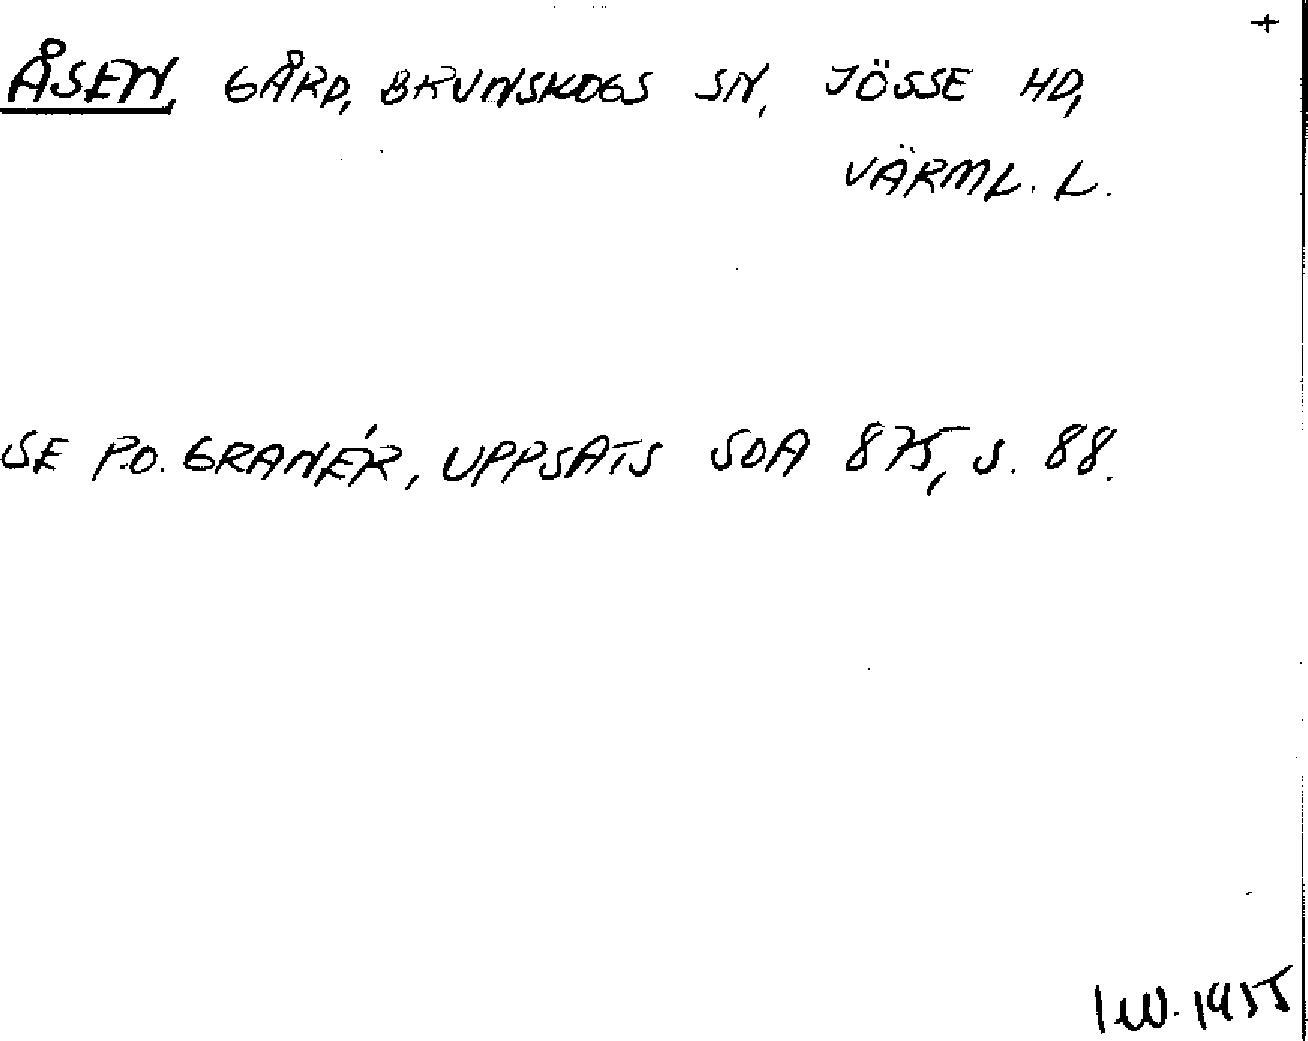 +
ÅSEN, GÅRD, BRUNSKOGS SN, JÖSSE HD,
VÄRML. L.
SE P.O. GRANÉR, UPPSATS SOA 875, S. 88.
IW. 1955